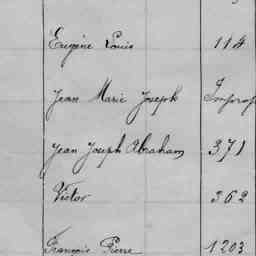 Eugène Louis 114
Jean Marie Joseph
Jean Joseph Abraham 371
Victor 362
François Pierre 1203